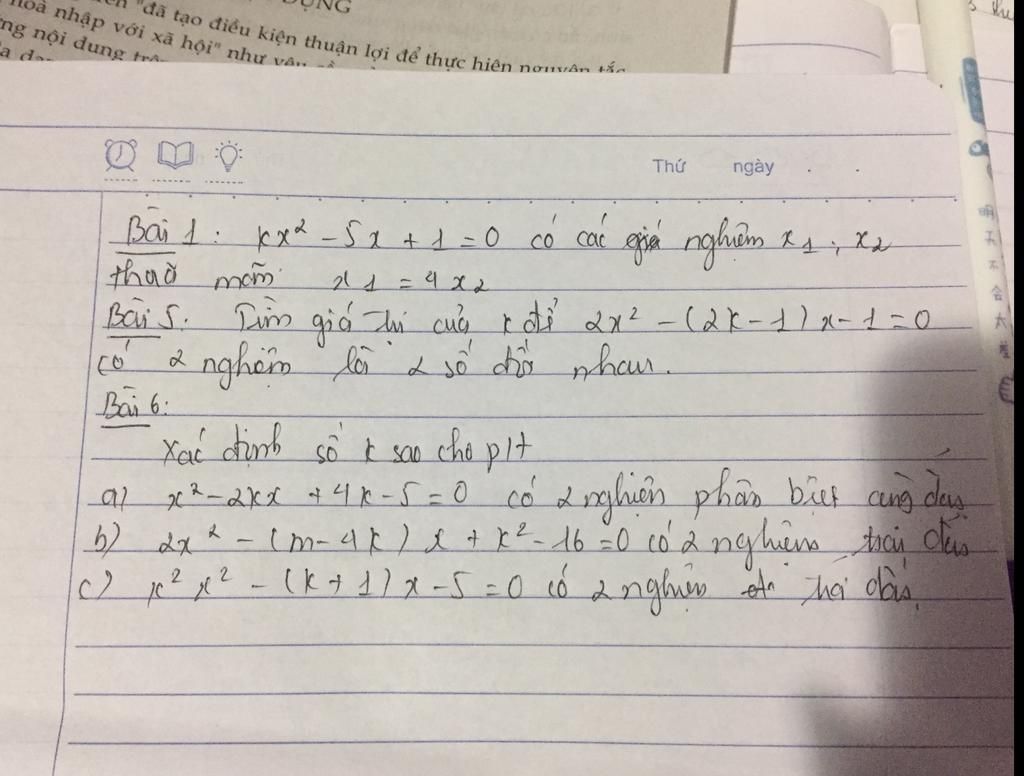 "đã tạo điều kiện thuận lợi để thực hiện nguyên tắc
hoà nhập với xã hội" như yêu
nội dung
Thứ ngày . .
Bài 1 : kx² - 5x + 1 = 0 có các nghiệm x1 , x2
thoả mãn x1 = 4x2
Bài 5. Tìm giá trị của k để 2x² - (2k - 1) x - 1 = 0
có 2 nghiệm là 2 số đối nhau.
Bài 6:
Xác định số k sao cho p/t
a) x² - 2kx + 4k - 5 = 0 có 2 nghiệm phân biệt cùng dấu
b) 2x² - (m - 4k) x + k² - 16 = 0 có 2 nghiệm trái dấu
c) x² - (k + 1) x - 5 = 0 có 2 nghiệm trái dấu.
明
天
不
合
太
差